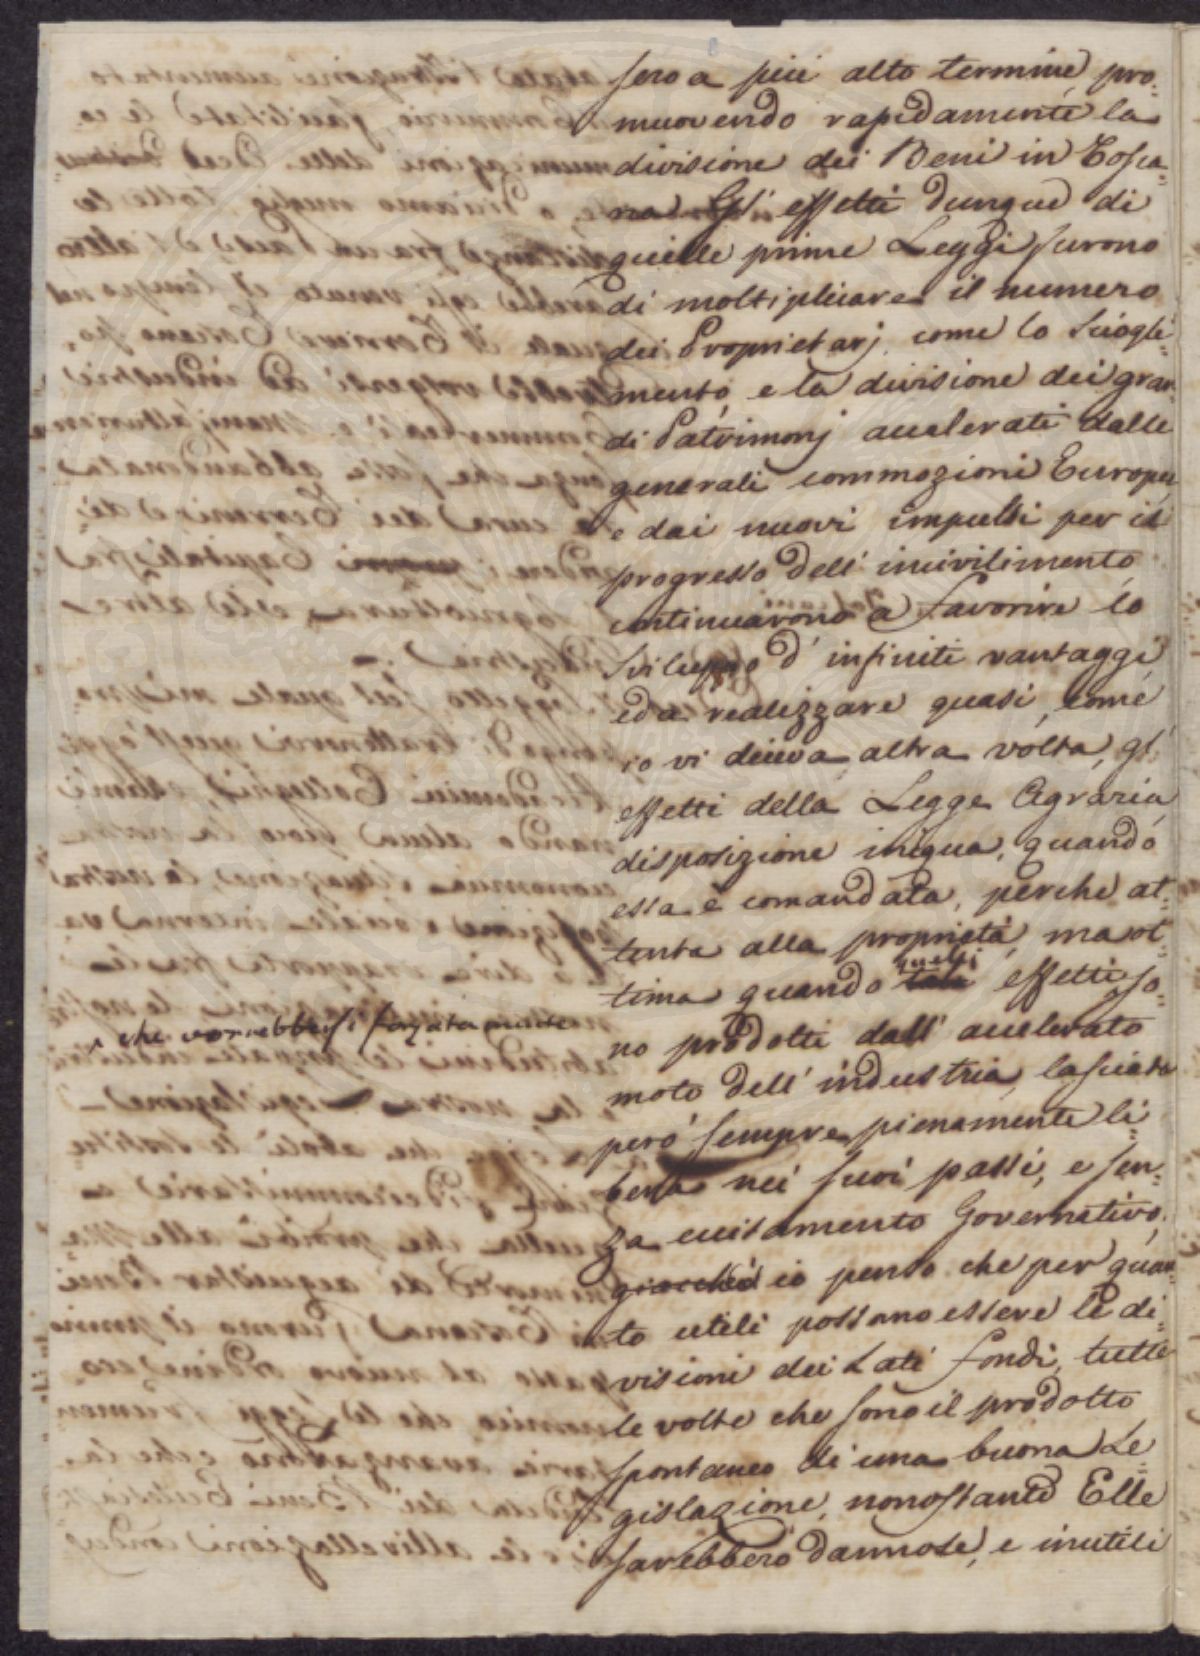 sero a più alto termine pro=
muovendo rapidamente la
divisione dei Beni in Tosca=
na Gl' effetti dunque di
quelle prime Leggi furono
di moltiplicare il numero
dei Proprietarj come lo Sciogli=
mento e la divisione dei gran=
di Patrimonj accelerati dalle
generali commozioni Europee
e dai nuovi impulsi per il
progresso dell' incivilimento
continuarono a favorire lo
Sviluppo d' infiniti vantaggi
ed a realizzare quasi, come
io vi diceva altra volta, gl'
effetti della Legge Agraria
disposizione iniqua, quando
essa è comandata, perche at=
tenta alla proprietà, ma ot=
tima quando tali quelli effetti so=
no prodotti dall' accelerato
moto dell' industria, lasciata
però sempre pienamente li=
bera nei suoi passi, e sen=
za eccitamento Governativo,
giacchè io penso che per quan=
to utili possano essere le di=
visioni dei Lati fondi, tutte
le volte che sono il prodotto
spontaneo di una buona Le=
gislazione, nonostante Elle
sarebbero dannose, e inutili
che vorrebbersi forzatamente